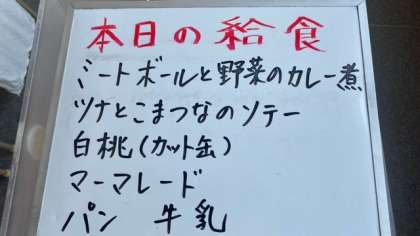 本日の給食
ミートボールと野菜のカレー煮
ツナとこまつなのソテー
白桃(カット缶)
マーマレード
パン 牛乳